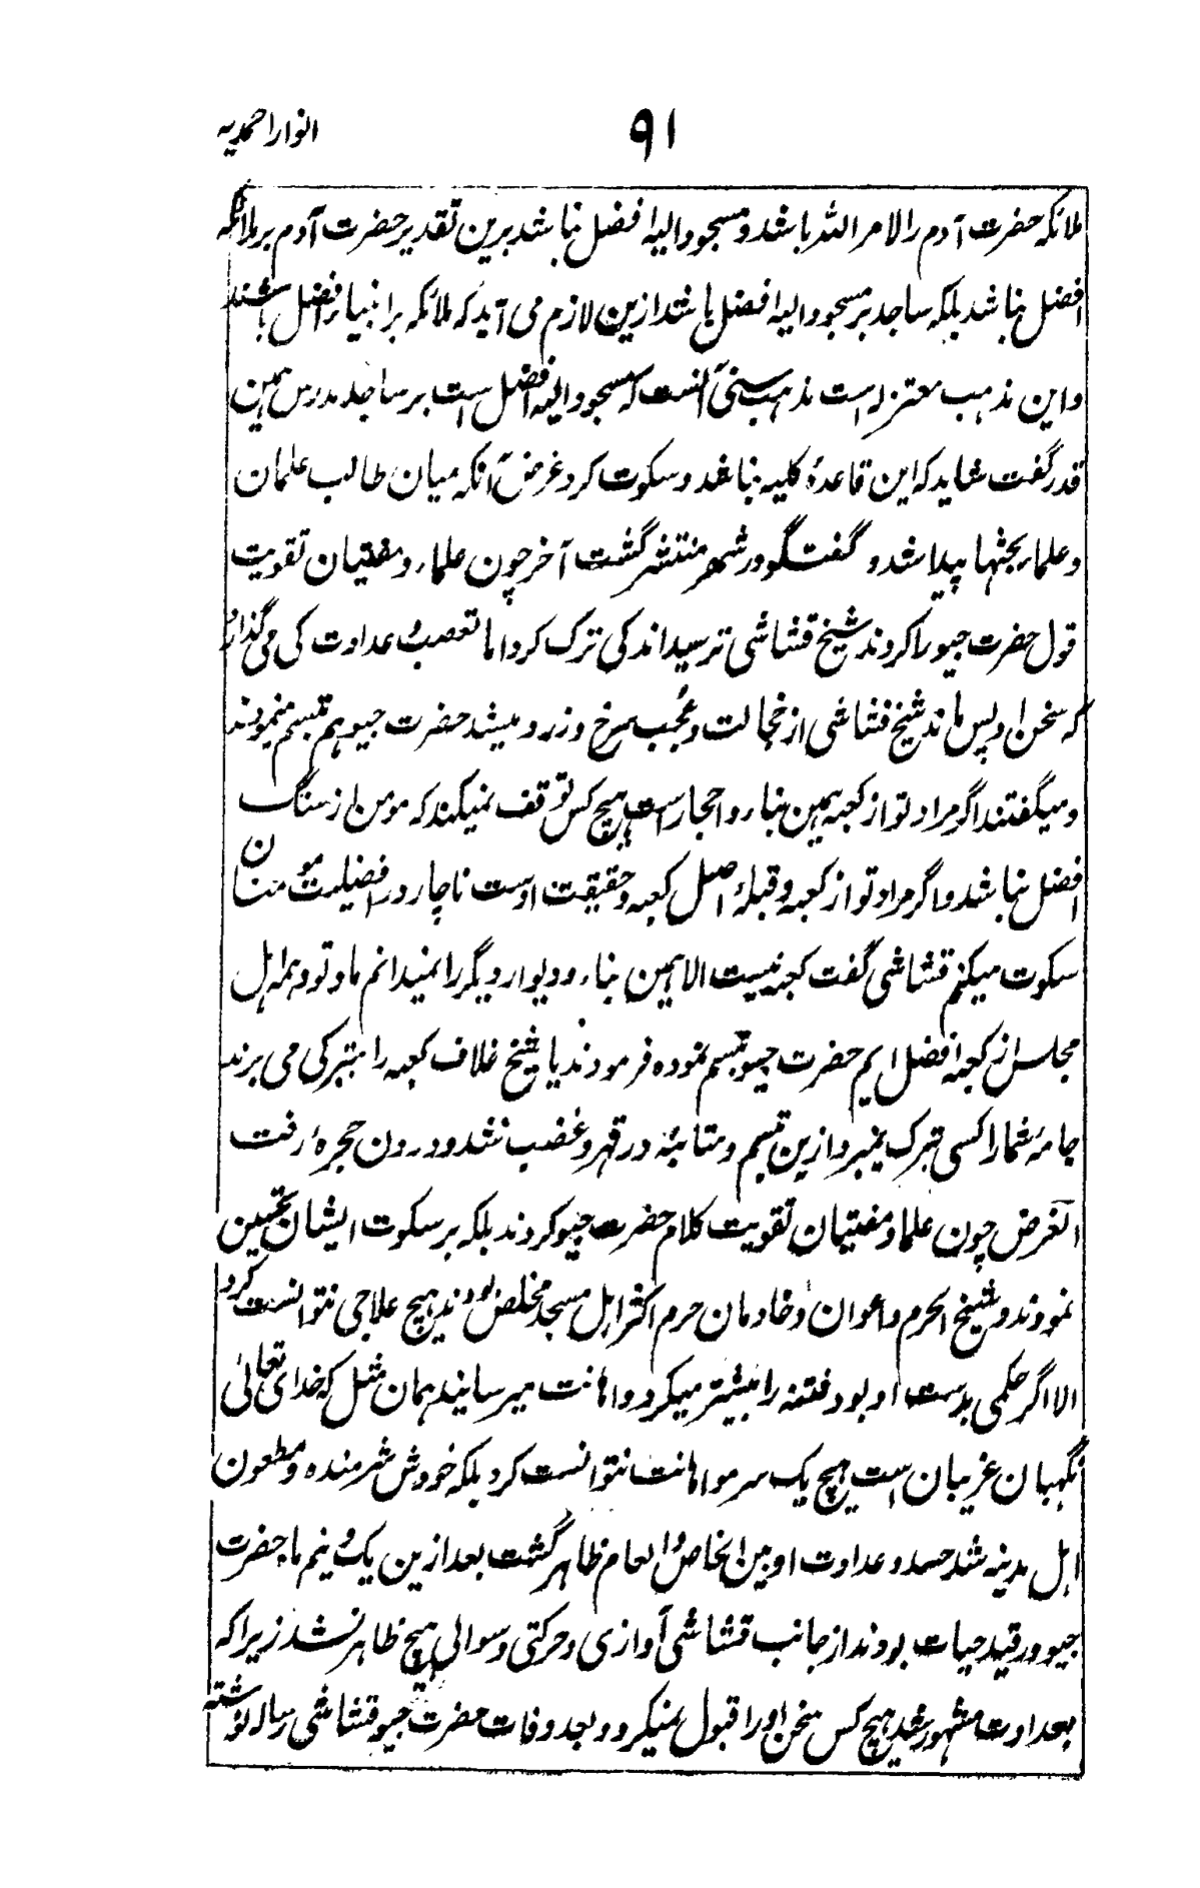 انوار احمدیه
۹۱
ملائکه حضرت آدم را لامر الله باشد و مسجود الیه افضل نباشد برین تقدیر حضرت آدم بر ملائکه
افضل نباشد بلکه ساجد بر مسجود الیه افضل باشد ازین لازم می آید که ملائکه بر انبیا افضل باشند
و این مذهب معتزله است مذهب سنی آنست که مسجود الیه افضل است بر ساجد مدرس همین
قدر گفت شاید که این قاعدهٔ کلیه نباشد و سکوت کرد غرض آنکه میان طالب علمان
و علما بحثها پیدا شد و گفتگو در شهر منتشر گشت آخر چون علماء و مفتیان تقویت
قول حضرت جیو را کردند شیخ قشاشی ترسید اندکی ترک کرد اما تعصب و عداوت کی می گذارد
که سخن او پس ماند شیخ قشاشی از خجالت و عجب سرخ و زرد میشد حضرت جیو هم تبسم مینمودند
و میگفتند اگر مراد تو از کعبه همین بناء و احجار است هیچ کس توقف نمیکند که مومن از سنگ
افضل نباشد و اگر مراد تو از کعبه و قبله اصل کعبه و حقیقت اوست ناچار در افضلیت مومنان
سکوت میکنم قشاشی گفت کعبه نیست الا همین بناء و دیوار دیگر را نمیدانم ما و تو و همه اهل
مجلس از کعبه افضل ایم حضرت جیو تبسم نموده فرمودند یا شیخ غلاف کعبه را بتبرکی می برند
جامهٔ شما را کسی تبرک نمیبرد ازین تبسم و متانه در قهر و غضب شد و درون حجرهٔ رفت
الغرض چون علما و مفتیان تقویت کلام حضرت جیو کردند بلکه بر سکوت ایشان تحسین
نمودند و شیخ الحرم و اعوان و خادمان حرم اکثر اهل مسجد مخلص بودند هیچ علاجی نتوانست کرد
الا اگر حکمی بدست او بود فتنه را بیشتر میکرد و اهانت میرسانید همان مثل که خدای تعالی
نگهبان غریبان است هیچ یک سر مو اهانت نتوانست کرد بلکه خودش شرمنده و مطعون
اهل مدینه شد حسد و عداوت او بین الخاص و العام ظاهر گشت بعد ازین یک و نیم ماه حضرت
جیو در قید حیات بودند از جانب قشاشی آوازی و حرکتی و سوالی هیچ ظاهر نشد زیرا که
بعداوت مشهور شد هیچ کس سخن او را قبول نمیکرد و بعد وفات حضرت جیو قشاشی رساله نوشته